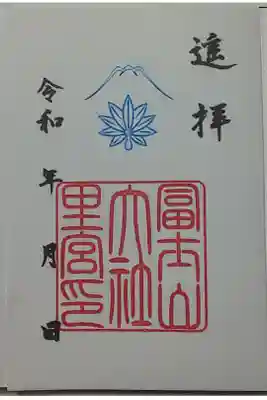 遙拝
冨士山
大社
里宮印
令和 年 月 日